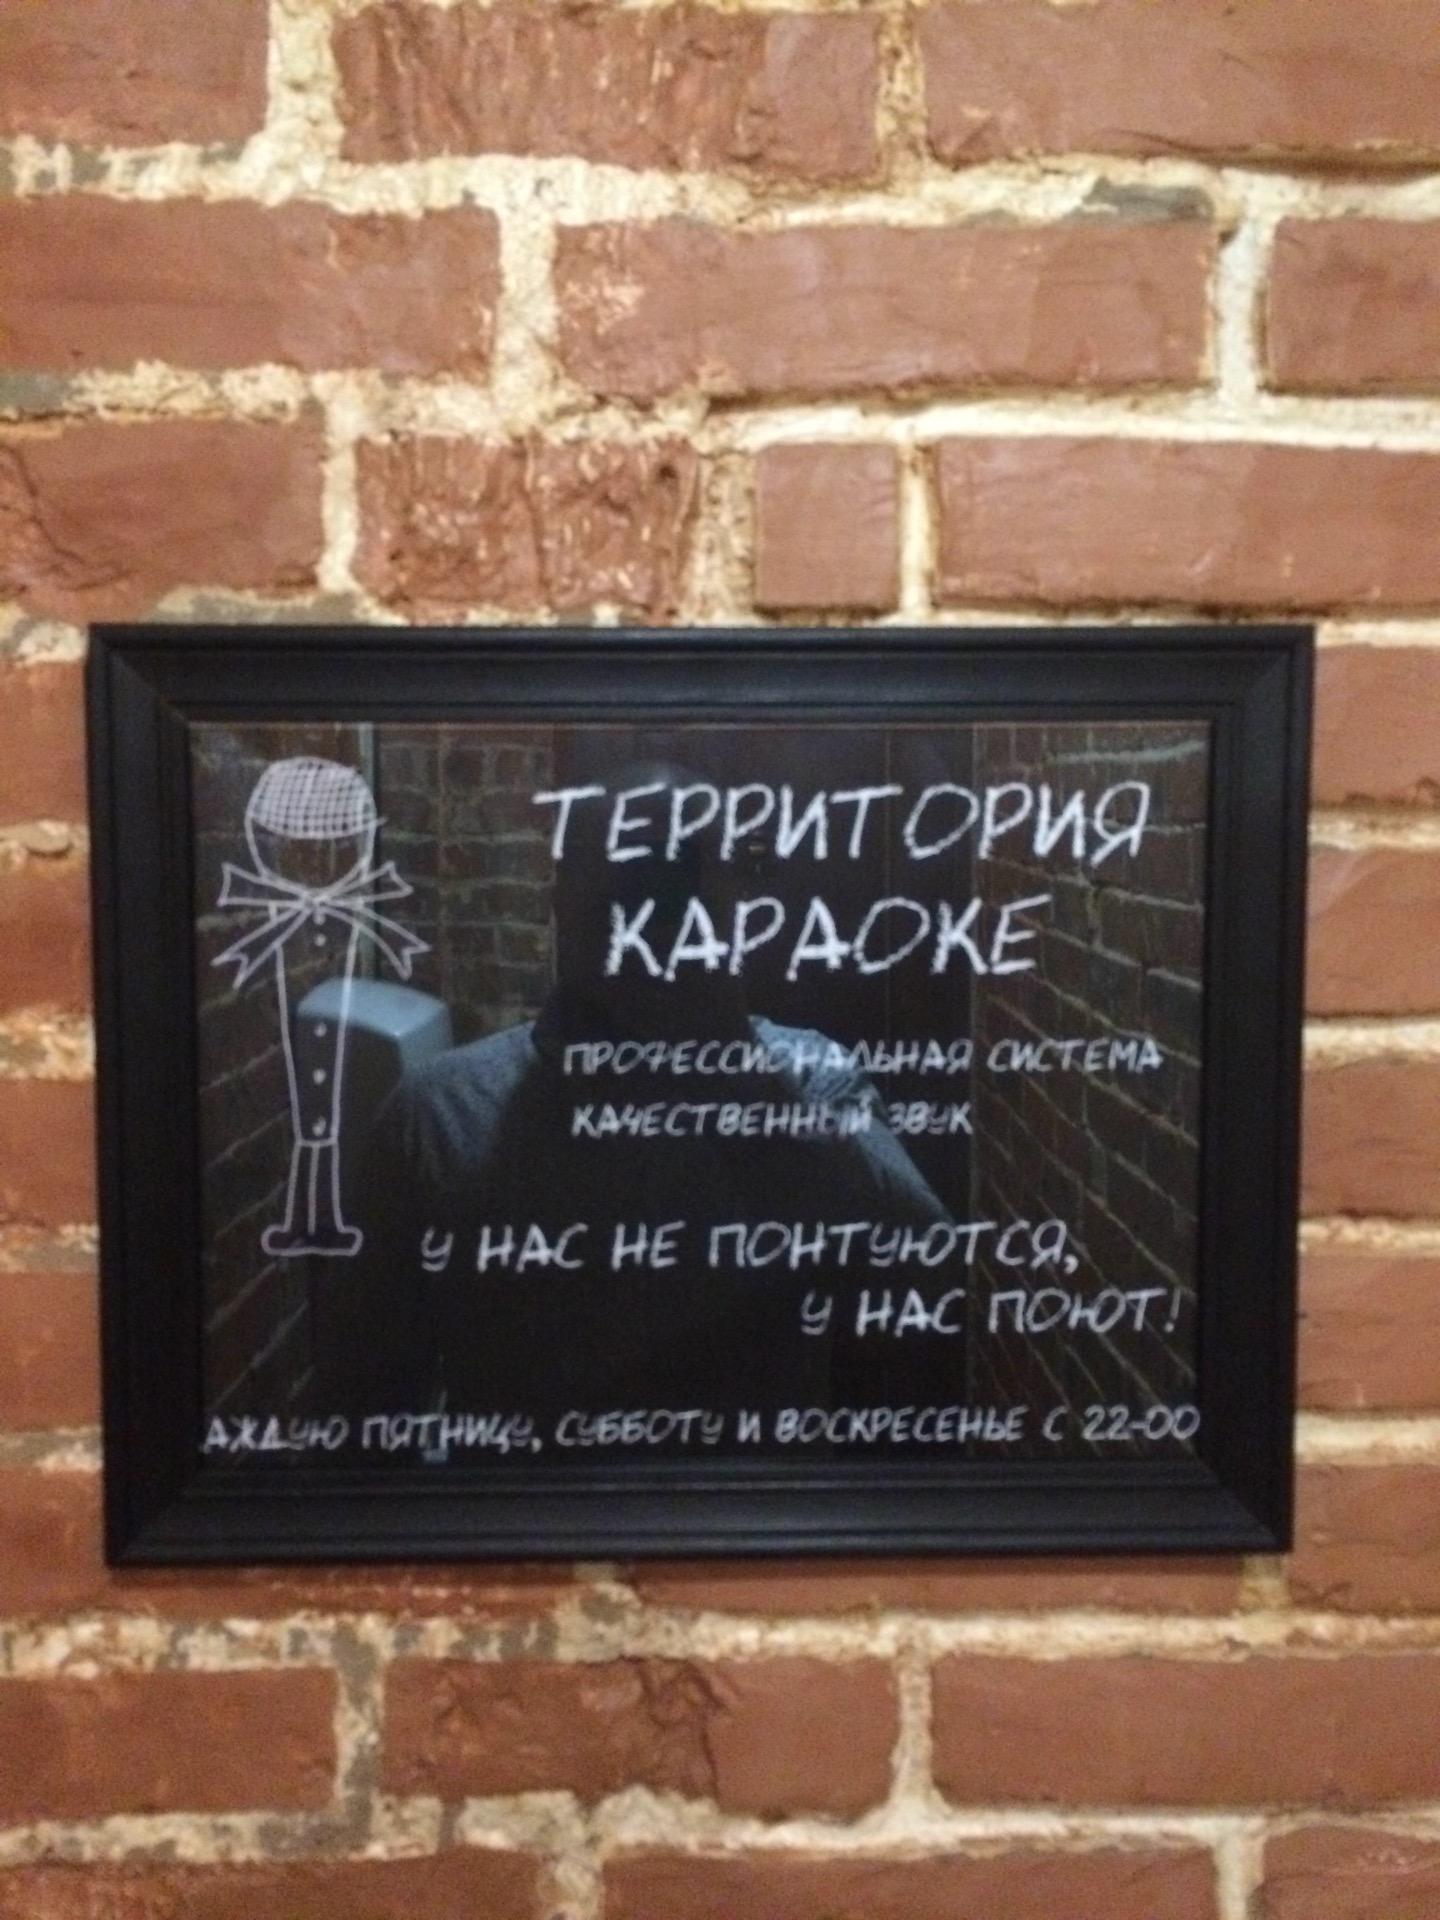 ТЕРРИТОРИЯ
КАРАОКЕ
ПРОФЕССИОНАЛЬНАЯ СИСТЕМА
КАЧЕСТВЕННЫЙ ЗВУК
У НАС НЕ ПОНТУЮТСЯ,
У НАС ПОЮТ!
АЖДУЮ ПЯТНИЦУ, СУББОТУ И ВОСКРЕСЕНЬЕ С 22-00